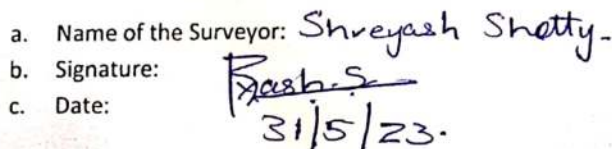 a. Name of the Surveyor: Shreyash Shetty-
b. Signature: Yash.S
c. Date: 31/5/23.